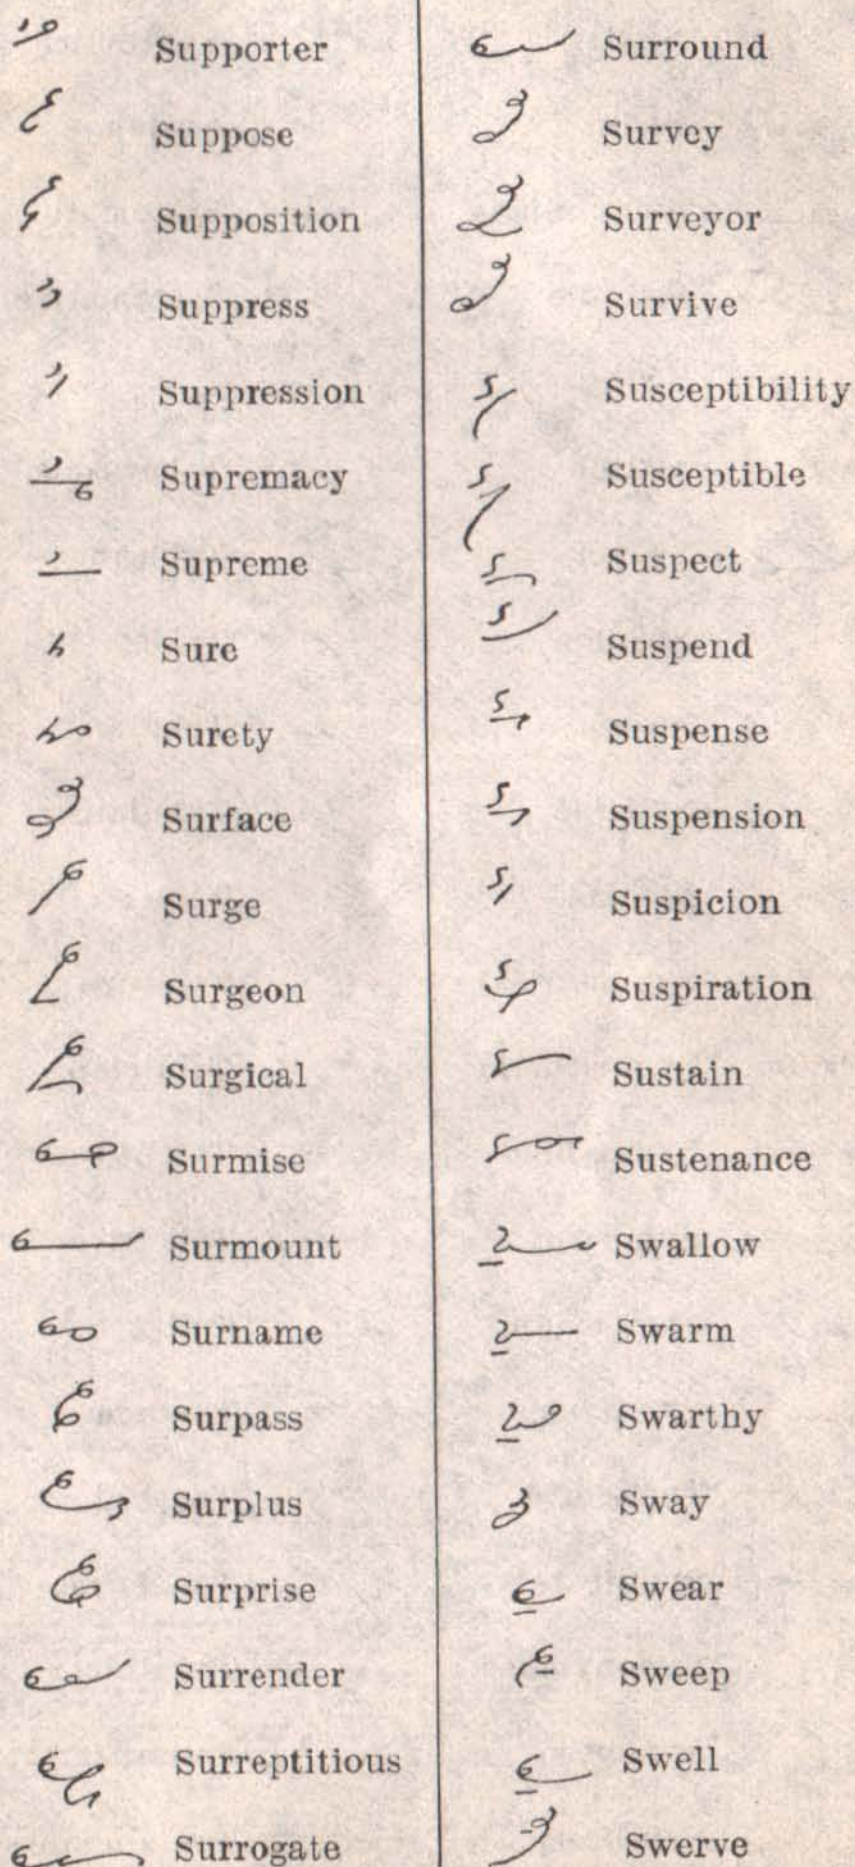 Supporter
Suppose
Supposition
Suppress
Suppression
Supremacy
Supreme
Sure
Surety
Surface
Surge
Surgeon
Surgical
Surmise
Surmount
Surname
Surpass
Surplus
Surprise
Surrender
Surreptitious
Surrogate
Surround
Survey
Surveyor
Survive
Susceptibility
Susceptible
Suspect
Suspend
Suspense
Suspension
Suspicion
Suspiration
Sustain
Sustenance
Swallow
Swarm
Swarthy
Sway
Swear
Sweep
Swell
Swerve